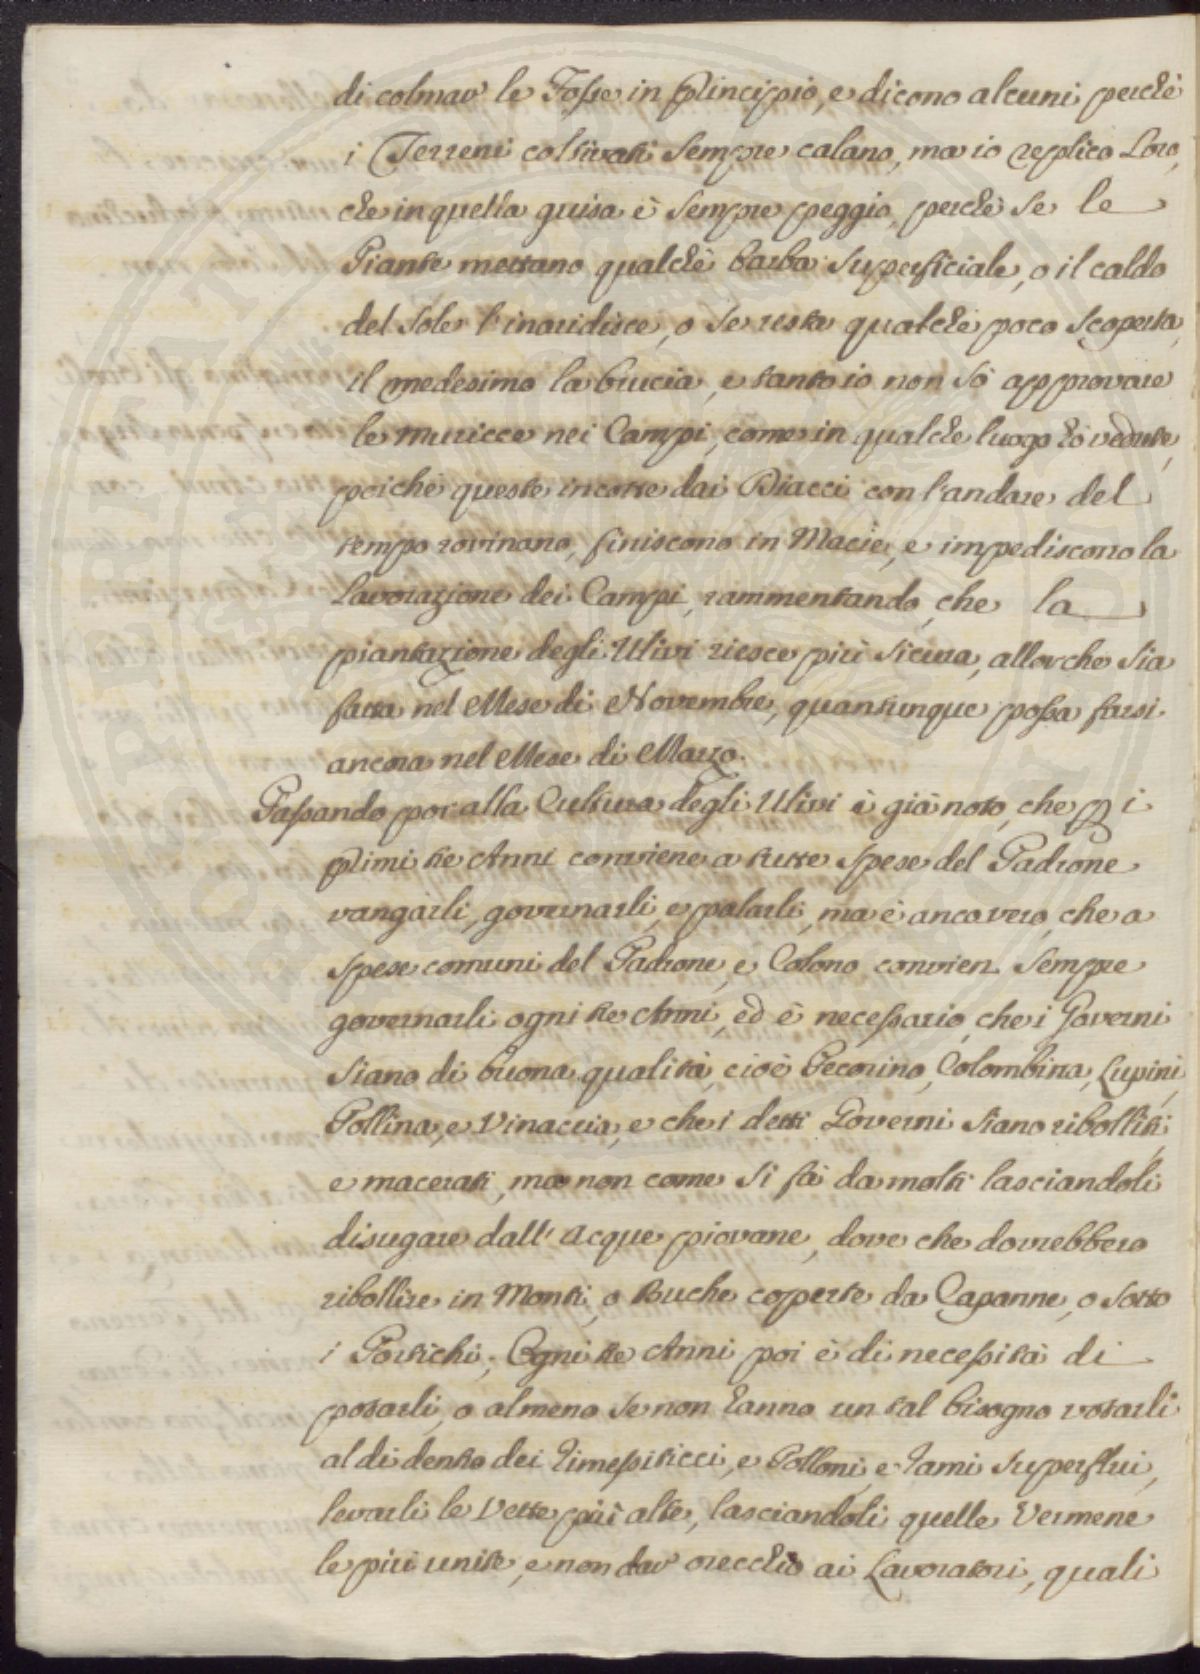 di colmar le Fosse in principio, e dicono alcuni perchè
i Terreni coltivati sempre calano, ma io replico Loro,
che in quella guisa è sempre peggio, perchè se le
Piante mettano qualche barba superficiale, o il caldo
del sole l'inaridisce, o se resta qualche poco scoperta,
il medesimo la brucia, e tanto io non sò approvare
le muricce nei Campi, come in qualche luogo hò vedute,
poichè queste incotte dai Diacci con l'andare del
tempo rovinano, finiscono in Macie, e impediscono la
Lavorazione dei Campi, rammentando, che la
piantazione degli Ulivi riesce più sicura, allorche sia
fatta nel Mese di Novembre, quantunque possa farsi
ancora nel Mese di Marzo.
Passando poi alla Cultura degli Ulivi è già noto, che p i
primi tre Anni conviene a tutte spese del Padrone
vangarli, governarli, e palarli, ma è anco vero, che a
spese comuni del Padrone, e Colono convien sempre
governarli ogni tre Anni, ed è necessario, che i Governi
siano di buona qualità, cioè Pecorino, Colombina, Lupini,
Pollina, e Vinaccia, e che i detti Governi siano ribolliti,
e macerati, ma non come si fà da molti lasciandoli
disugare dall'Acque piovane, dove che dovrebbero
ribollire in Monti, o Buche coperte da Capanne, o sotto
i Portichi; Ogni tre Anni poi è di necessità di
potarli, o almeno se non hanno un tal bisogno votarli
al di dentro dei Rimessiticci, e Polloni, e Rami superflui,
levarli le Vette più alte, lasciandoli quelle Vermene
le più unite, e non dar orecchio ai Lavoratori, quali